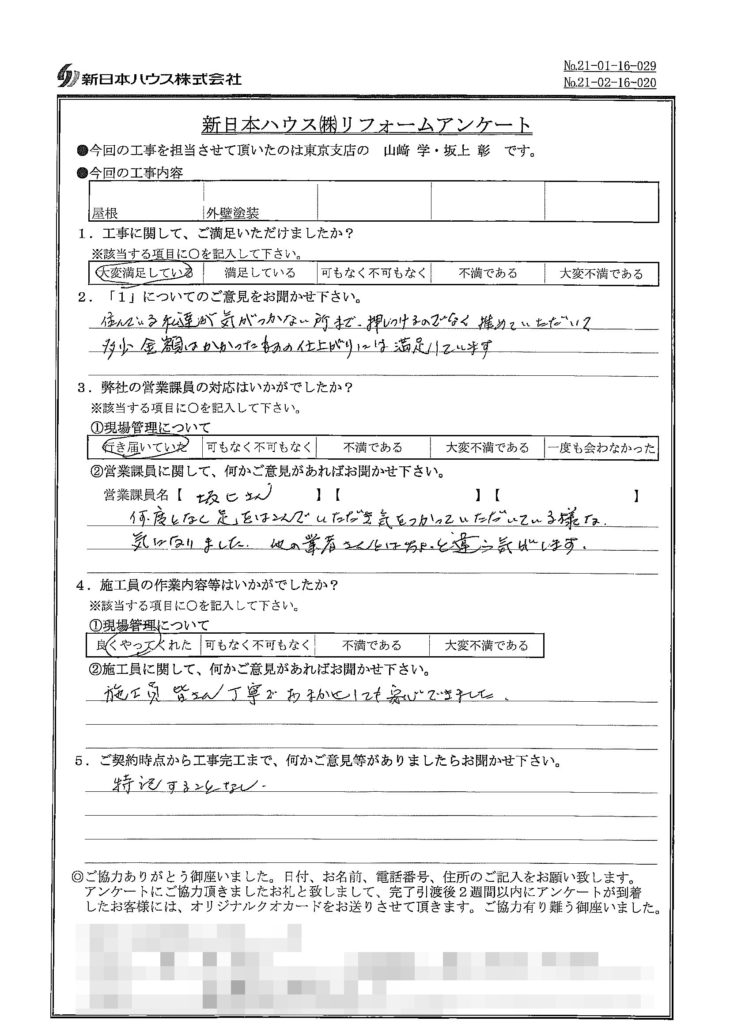 新日本ハウス株式会社
No.21-01-16-029
No.21-02-16-020
新日本ハウス㈱リフォームアンケート
●今回の工事を担当させて頂いたのは東京支店の 山﨑 学・坂上 彰 です。
●今回の工事内容
屋根 外壁塗装
1．工事に関して、ご満足いただけましたか？
※該当する項目に○を記入して下さい。
大変満足している 満足している 可もなく不可もなく 不満である 大変不満である
2．「1」についてのご意見をお聞かせ下さい。
住んでいる私達が気がつかない所まで、押しつけるのでなく進めていただいて
多少金額はかかったものの仕上がりには満足しています
3．弊社の営業課員の対応はいかがでしたか？
※該当する項目に○を記入して下さい。
①現場管理について
行き届いていた 可もなく不可もなく 不満である 大変不満である 一度も会わなかった
②営業課員に関して、何かご意見があればお聞かせ下さい。
営業課員名【 坂上さん 】【 】【 】
何度となく足をはこんでいただき気をつかっていただいている様な
気になりました。他の業者さんとはちょっと違う気がします。
4．施工員の作業内容等はいかがでしたか？
※該当する項目に○を記入して下さい。
①現場管理について
良くやってくれた 可もなく不可もなく 不満である 大変不満である
②施工員に関して、何かご意見があればお聞かせ下さい。
施工員皆さん丁寧でおまかせしても安心できました。
5．ご契約時点から工事完工まで、何かご意見等がありましたらお聞かせ下さい。
特記することなし.
◎ご協力ありがとう御座いました。日付、お名前、電話番号、住所のご記入をお願い致します。
アンケートにご協力頂きましたお礼と致しまして、完了引渡後2週間以内にアンケートが到着
したお客様には、オリジナルクオカードをお送りさせて頂きます。ご協力有り難う御座いました。